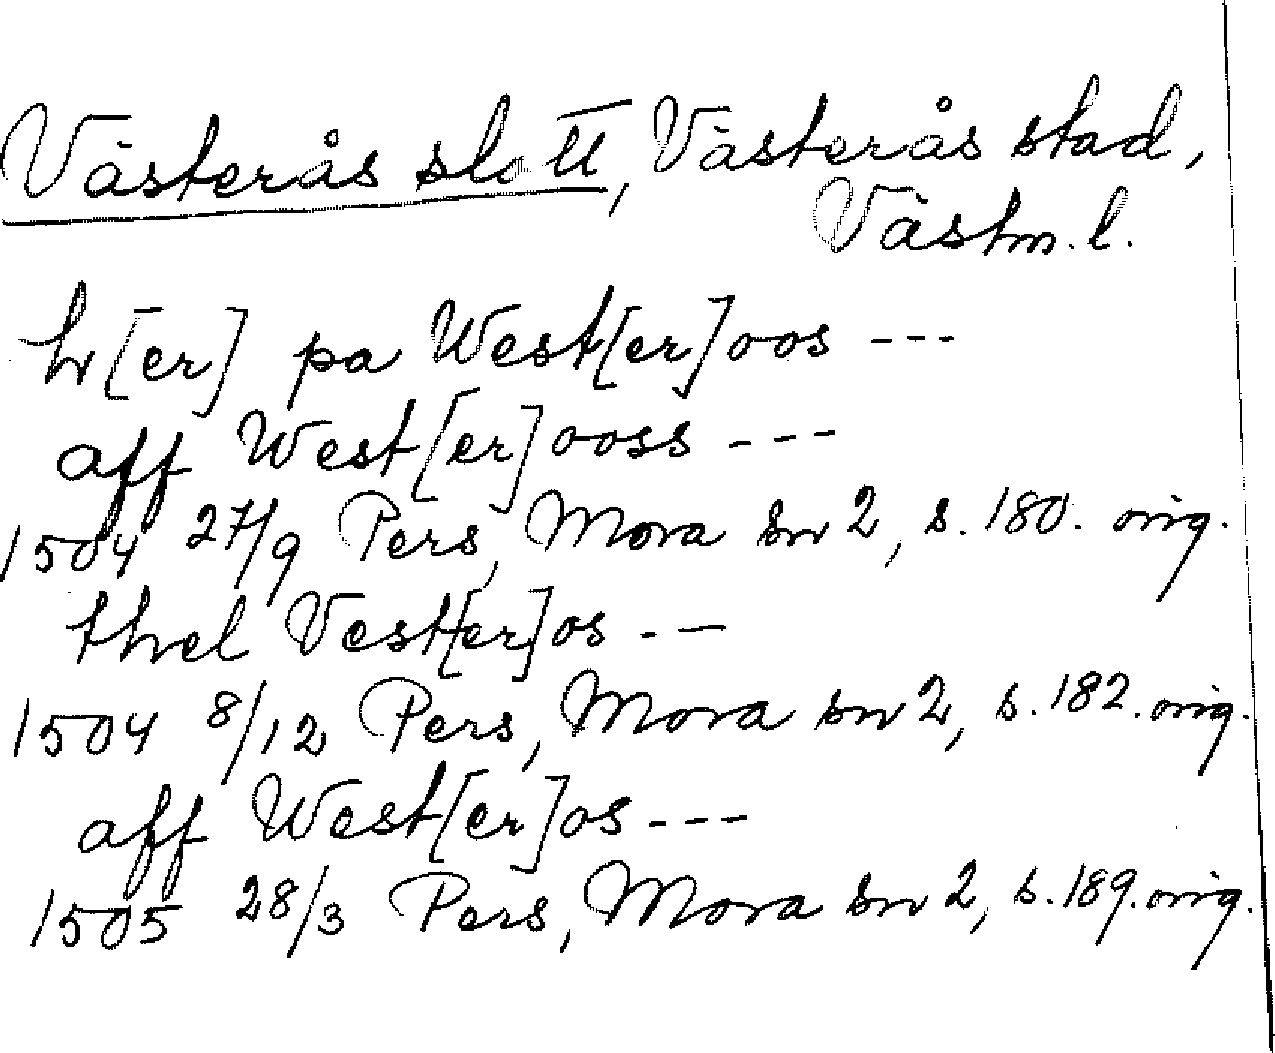 Västerås slott, Västerås stad,
Västm.l.
h[er] pa West[er]oos ---
aff West[er]ooss ---
1504 27/9 Pers, Mora sn 2, s. 180. orig.
thel Vest[er]os - --
1504 8/12 Pers, Mora sn 2, s. 182. orig.
aff West[er]os ---
1505 28/3 Pers, Mora sn 2, s. 189. orig.